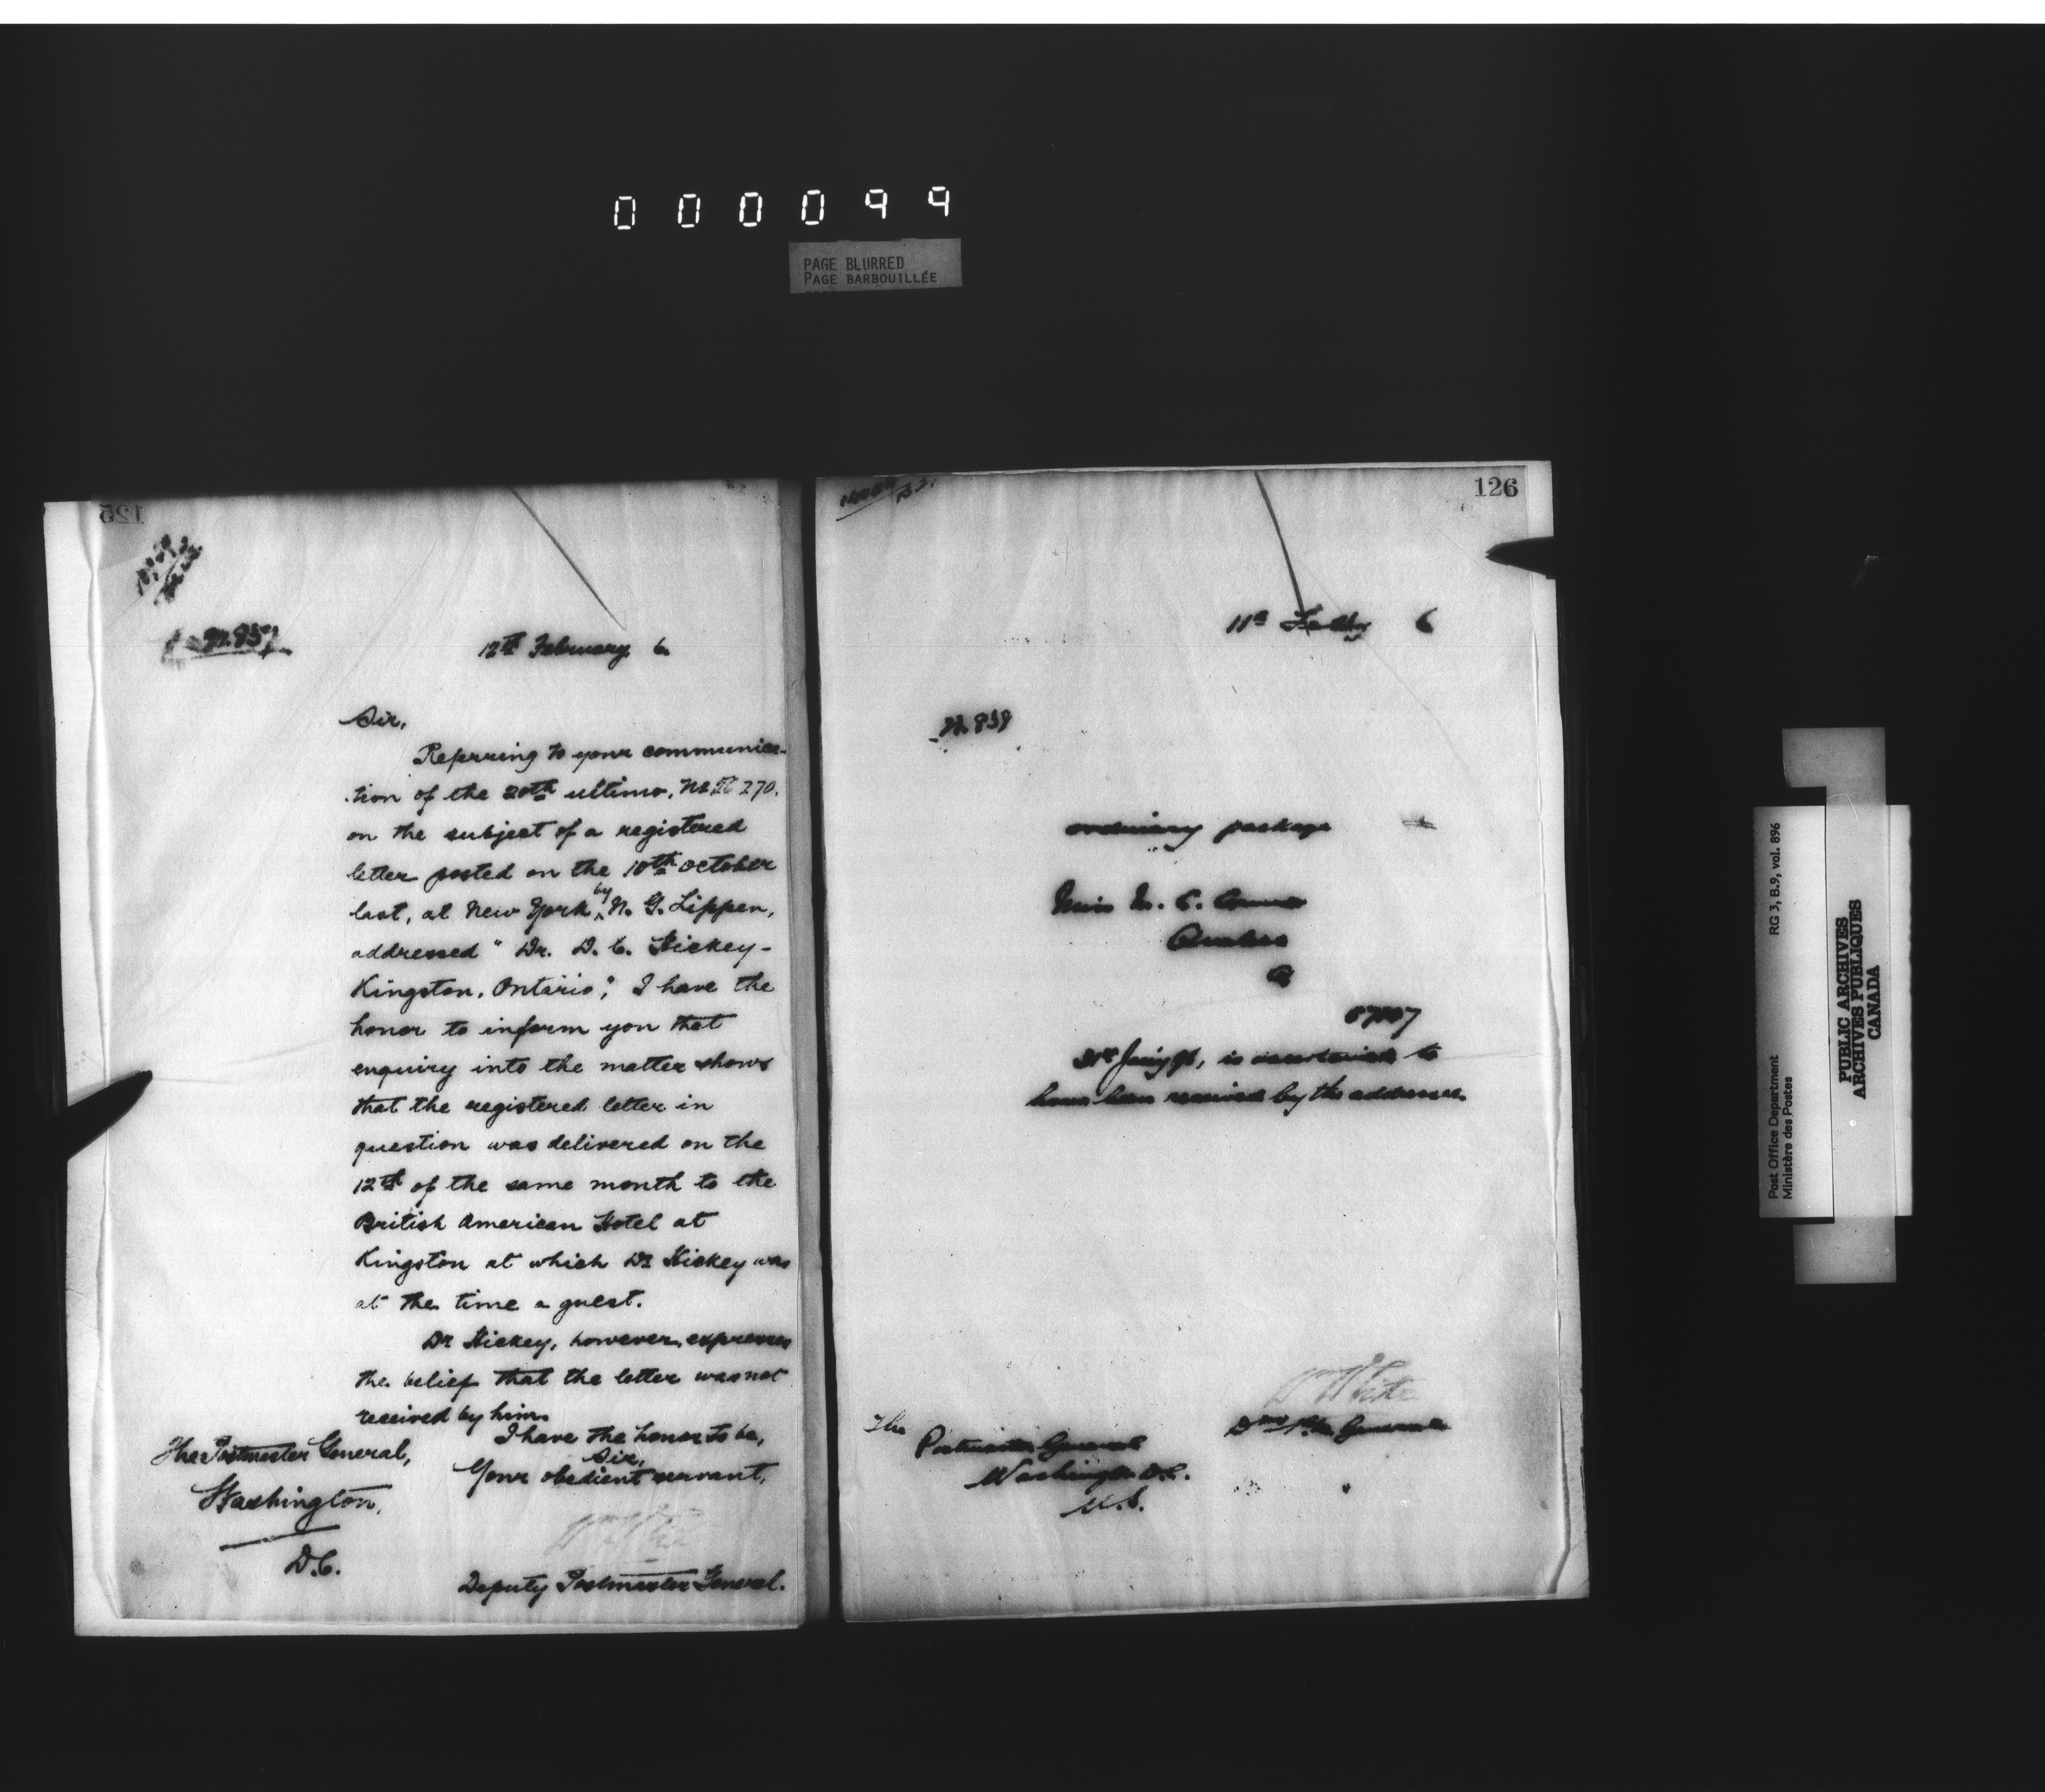 000099
PAGE BLURRED
PAGE BARBOUILLÉE
125
12th February 6
Sir,
Referring to your communica-
tion of the 20th ultimo, No. 270.
on the subject of a registered
letter posted on the 10th October
last, at New York by N. G. Lippen,
addressed "Dr. D. C. Hickey-
Kingston, Ontario", I have the
honor to inform you that
enquiry into the matter shows
that the registered letter in
question was delivered on the
12th of the same month to the
British American Hotel at
Kingston at which Dr Hickey was
at the time a guest.
Dr Hickey, however, expresses
the belief that the letter was not
received by him.
I have the honor to be,
Sir,
Your obedient servant,
Deputy Postmaster General.
The Postmaster General,
Washington,
D.C.
126
11th 6
ordinary package
Miss M. C.
Quebec
Q
is ascertained to
have been received by the addressee.
Wm White
General
The
Postmaster General
Washington D.C.
U.S.
Post Office Department
Ministère des Postes
RG 3, B.9, vol. 896
PUBLIC ARCHIVES
ARCHIVES PUBLIQUES
CANADA